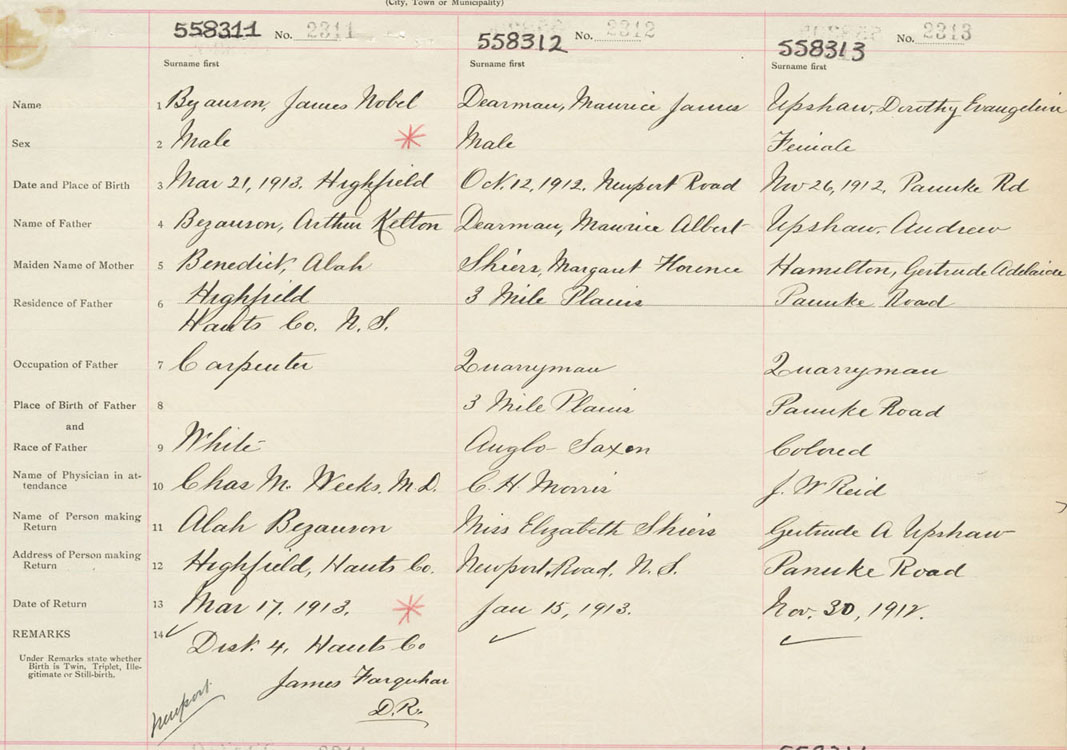 (City, Town or Municipality)
558311 No. 2311
558312 No. 2312
558313 No. 2313
Surname first Surname first Surname first
Name 1 Bezanson, James Nobel Dearman, Maurice James Upshaw, Dorothy Evangeline
Sex 2 Male Male Female
Date and Place of Birth 3 Mar 21, 1913. Highfield Oct. 12, 1912. Newport Road Nov 26, 1912. Panuke Rd
Name of Father 4 Bezanson, Arthur Kelton Dearman, Maurice Albert Upshaw, Andrew
Maiden Name of Mother 5 Benedict, Alah Shiers, Margaret Florence Hamilton, Gertrude Adelaide
Residence of Father 6 Highfield 3 Mile Plains Panuke Road
Hants Co. N.S.
Occupation of Father 7 Carpenter Quarryman Quarryman
Place of Birth of Father 8 3 Mile Plains Panuke Road
and
Race of Father 9 White Anglo-Saxon Colored
Name of Physician in at-
tendance 10 Chas M. Weeks, M.D. C. H. Morris J. W Reid
Name of Person making
Return 11 Alah Bezanson Miss Elizabeth Shiers Gertrude A Upshaw
Address of Person making
Return 12 Highfield, Hants Co. Newport Road, N.S. Panuke Road
Date of Return 13 Mar 17, 1913. Jan 15, 1913. Nov. 30, 1912.
REMARKS 14 Dist. 4, Hants Co
Under Remarks state whether
Birth is Twin, Triplet, Ille-
gitimate or Still-birth.
James Farquhar
D.R.
Newport